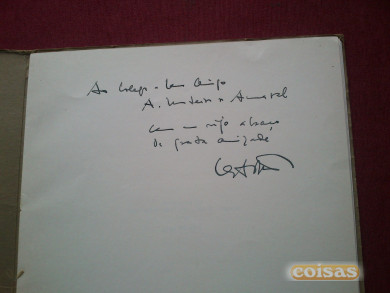 Ao colega e bom Amigo
A. Monteiro do Amaral
com um rijo abraço
de grata amizade
coisas